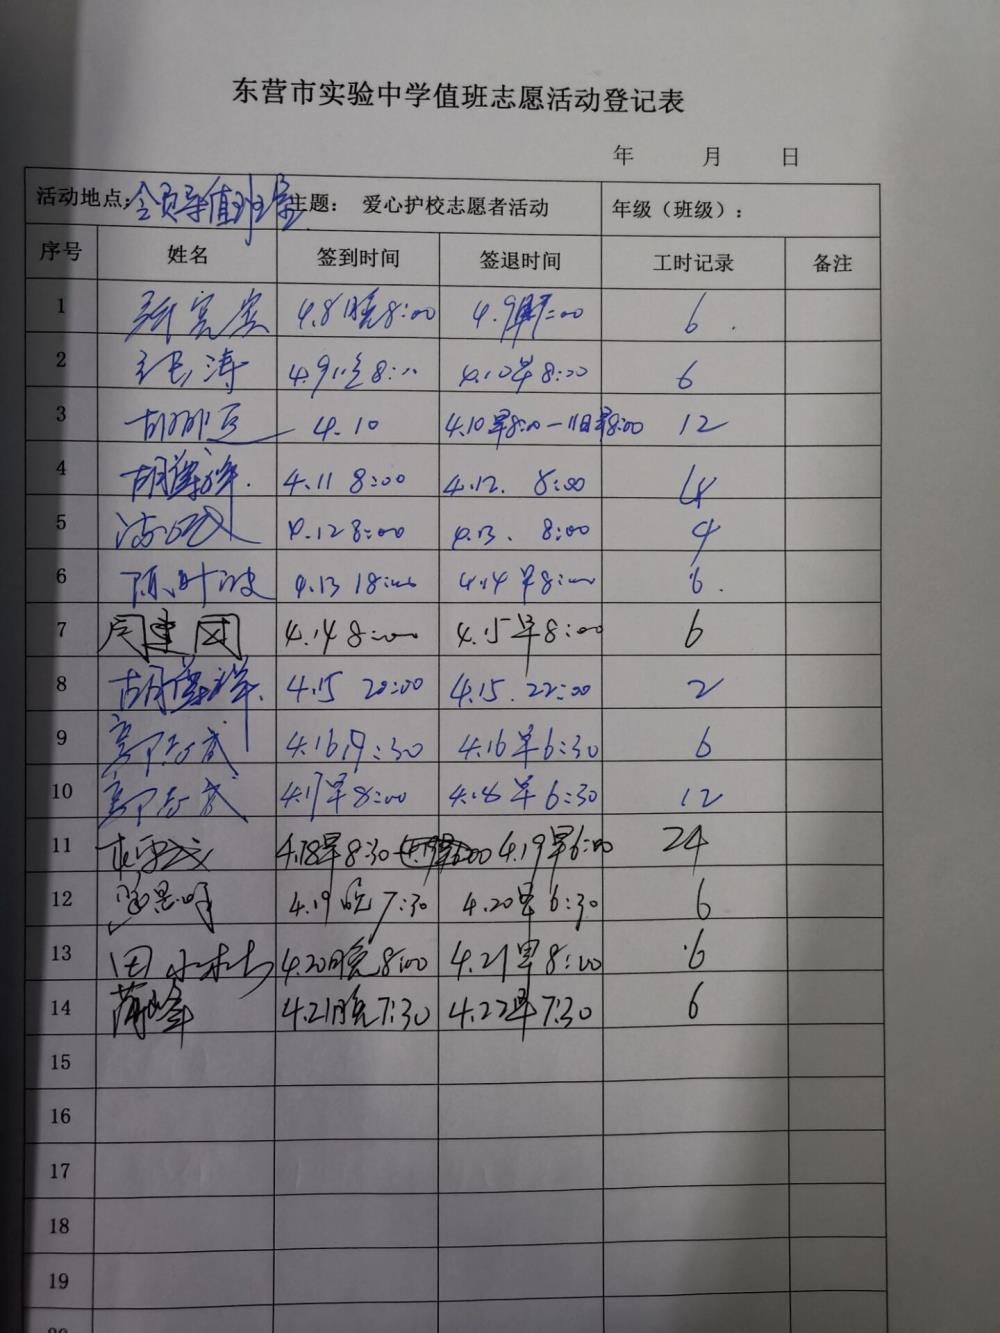 东营市实验中学值班志愿活动登记表
年 月 日
活动地点： 主题： 爱心护校志愿者活动 年级（班级）：
序号 姓名 签到时间 签退时间 工时记录 备注
1 4.8晚8:00 4.9早7:00 6
2 涛 4.9 8:00 4.10早8:00 6
3 胡 4.10 4.10早8:00—11日早8:00 12
4 胡 4.11 8:00 4.12. 8:00 4
5 4.12 8:00 4.13. 8:00 4
6 陈叶波 4.13 18:00 4.14早8:00 6
7 闫建团 4.14 8:00 4.15早8:00 6
8 胡 4.15 20:00 4.15. 22:00 2
9 4.16 :30 4.16早6:30 6
10 4.17早8:00 4.18早6:30 12
11 4.18早8:30 4.19早6:00 24
12 4.19晚7:30 4.20早6:30 6
13 田 4.20晚8:00 4.21早8:00 6
14 蒲峰 4.21晚7:30 4.22早7:30 6
15
16
17
18
19